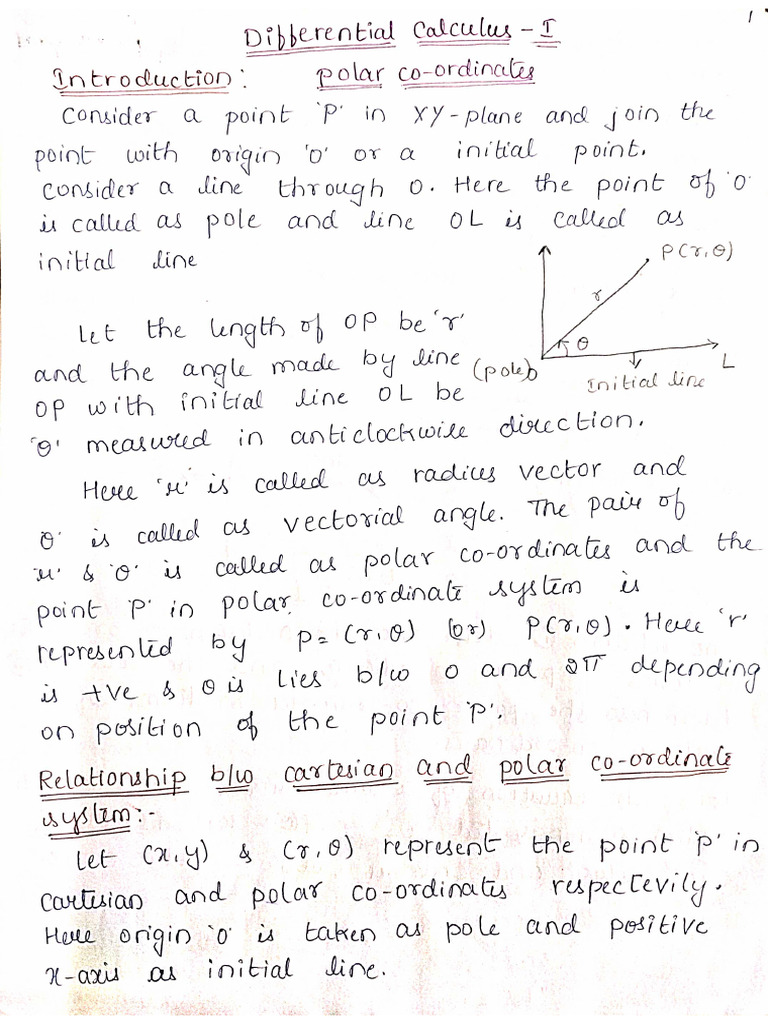 1
Differential Calculus - I
Introduction: polar co-ordinates
Consider a point 'P' in XY-plane and join the
point with origin 'O' or a initial point.
consider a line through O. Here the point of 'O'
is called as pole and line OL is called as
initial line
P(r,θ)
r
θ
(pole)O
L
Initial line
Let the length of OP be 'r'
and the angle made by line
OP with initial line OL be
'θ' measured in anticlockwise direction.
Here 'r' is called as radius vector and
θ' is called as vectorial angle. The pair of
'r' & 'θ' is called as polar co-ordinates and the
point 'P' in polar co-ordinate system is
represented by P=(r,θ) (or) P(r,θ). Here 'r'
is +ve & θ is lies b/w 0 and 2π depending
on position of the point 'P'.
Relationship b/w cartesian and polar co-ordinate
system:-
Let (x,y) & (r,θ) represent the point 'P' in
cartesian and polar co-ordinates respectevily.
Here origin 'O' is taken as pole and positive
x-axis as initial line.